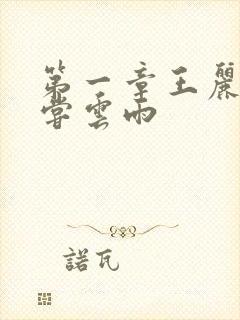 第一章王麗
嘗雲雨
諾瓦